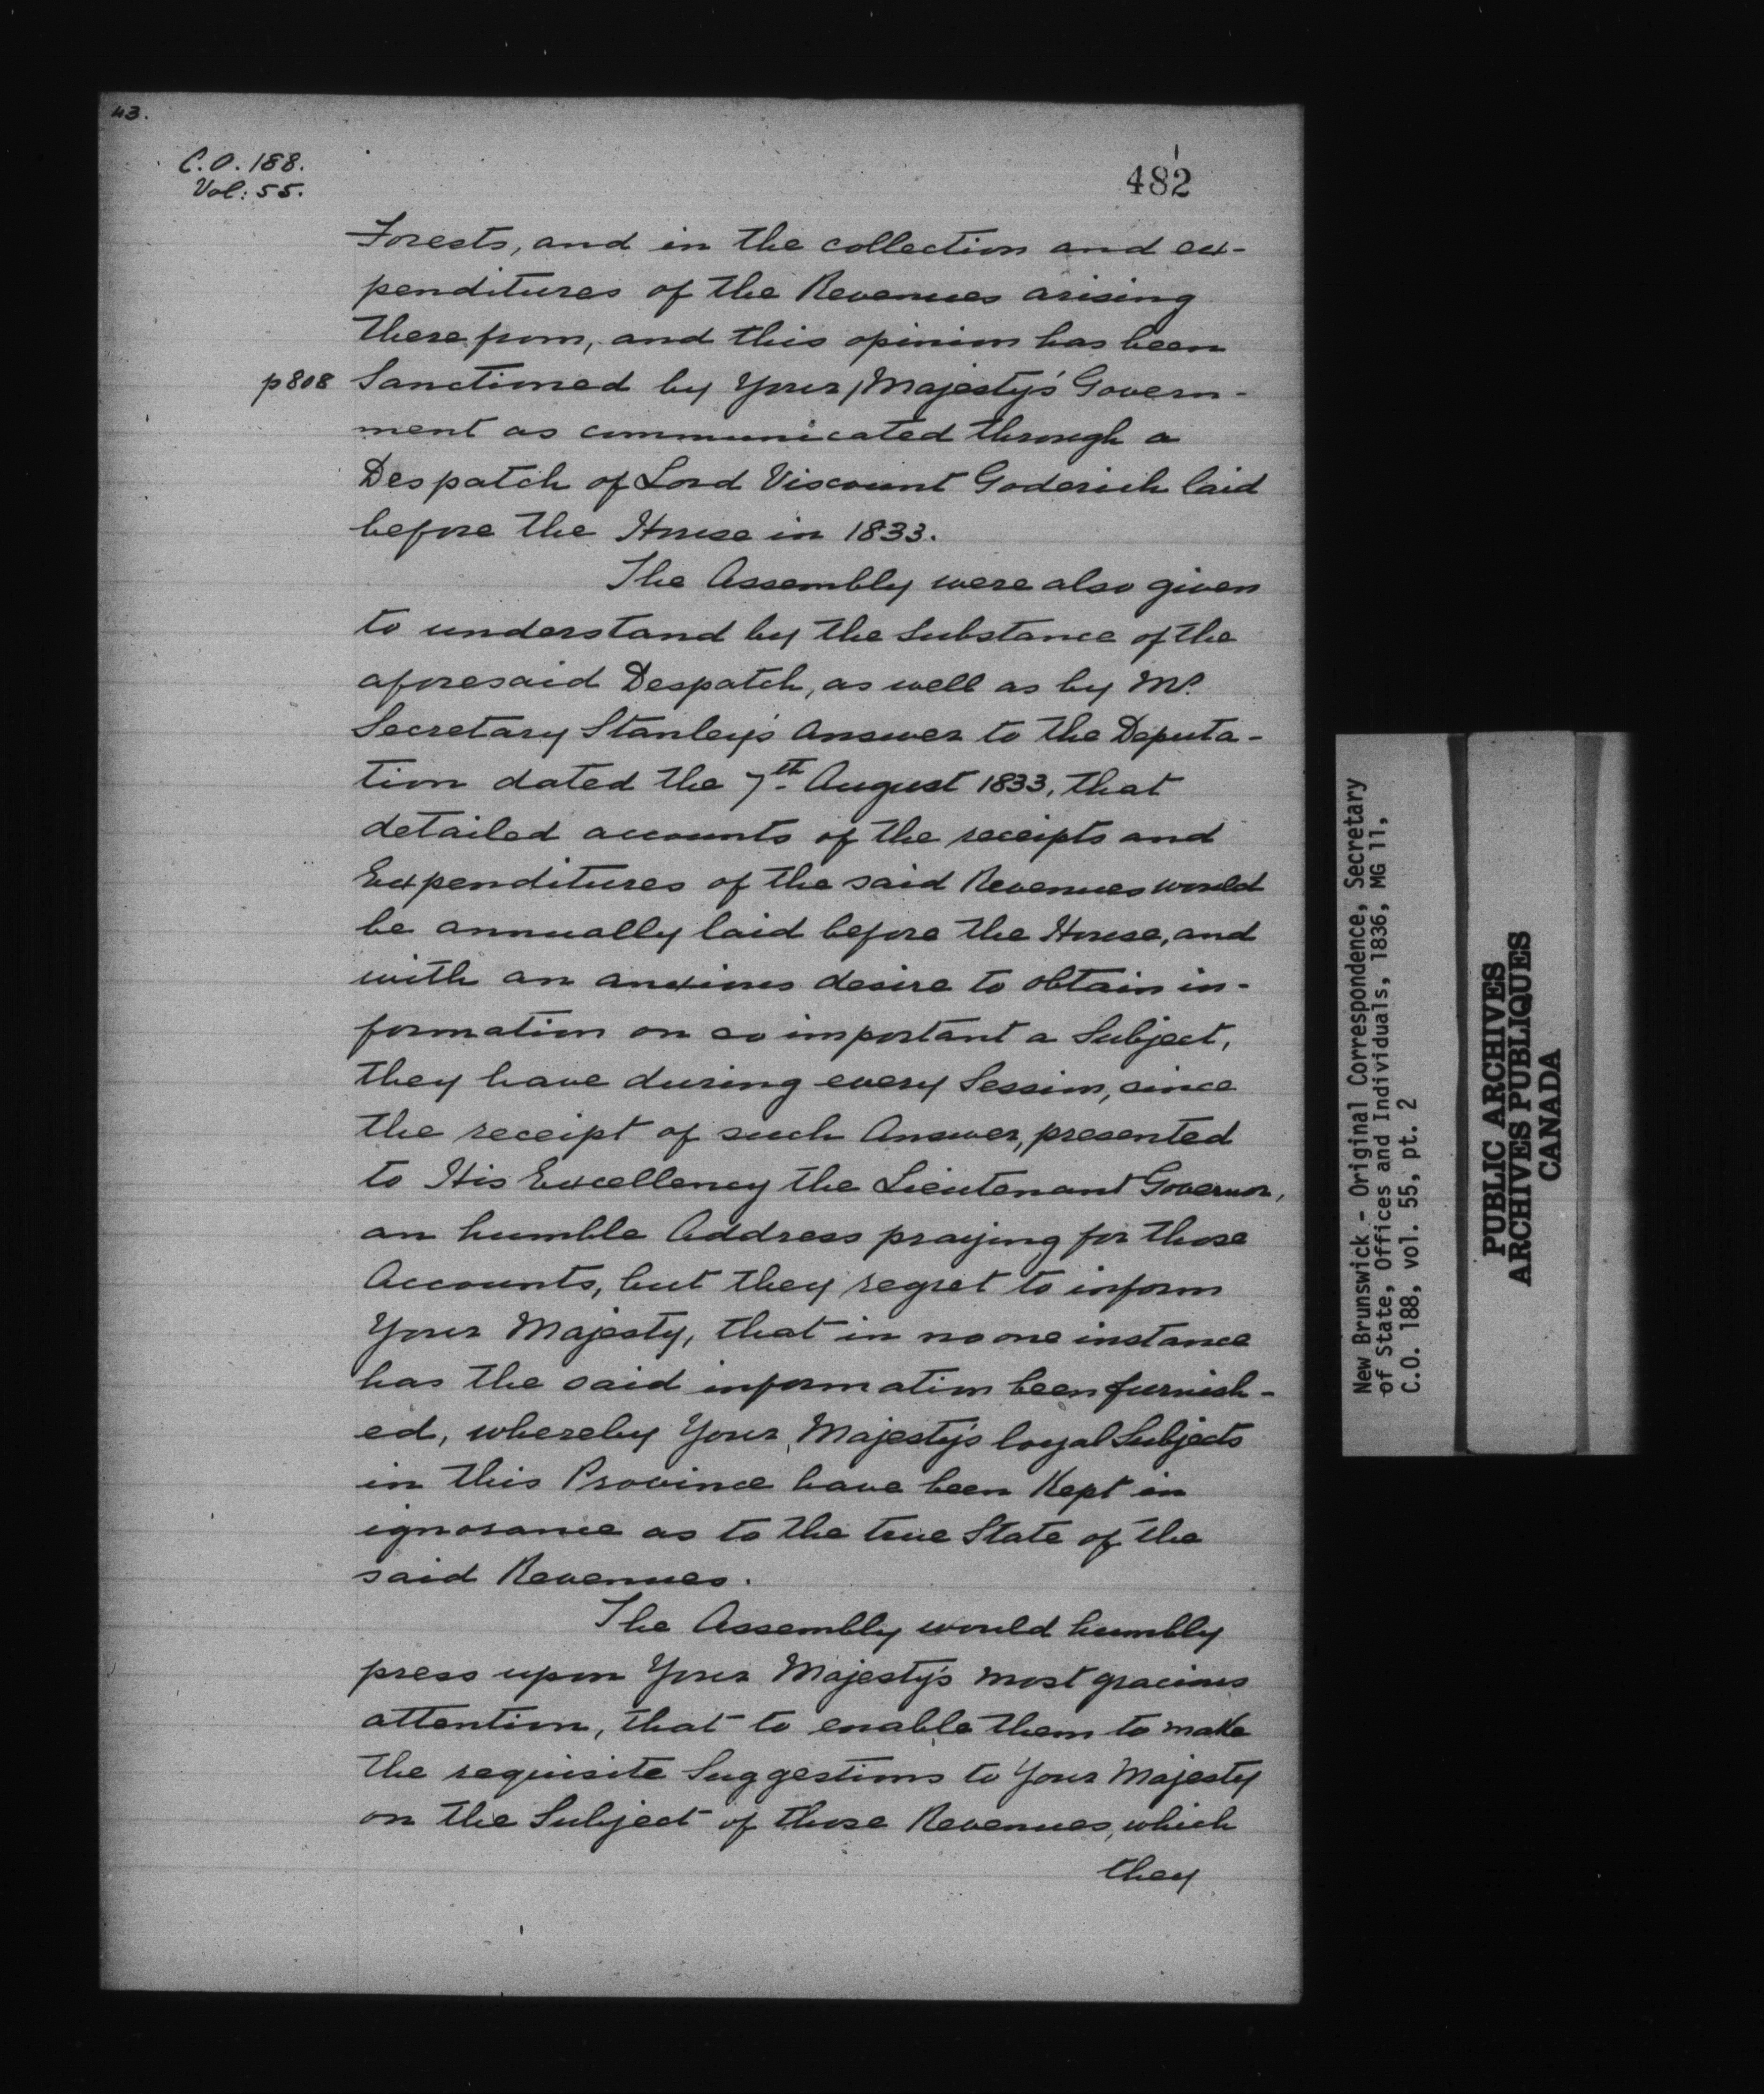 43.
C.O. 188.
Vol: 55.
482
Forests, and in the collection and ex-
penditures of the Revenues arising
therefrom, and this opinion has been
p808 Sanctioned by Your / Majesty's Govern-
ment as communicated through a
Despatch of Lord Viscount Goderich laid
before the House in 1833.
The Assembly were also given
to understand by the Substance of the
aforesaid Despatch, as well as by Mr.
Secretary Stanley's Answer to the Deputa-
tion dated the 7th August 1833, that
detailed accounts of the receipts and
Expenditures of the said Revenues would
be annually laid before the House, and
with an anxious desire to obtain in-
formation on so important a Subject,
they have during every Session, since
the receipt of such Answer, presented
to His Excellency the Lieutenant Governor,
an humble Address praying for those
Accounts, but they regret to inform
Your Majesty, that in no one instance
has the said information been furnish-
ed, whereby Your Majesty's loyal Subjects
in this Province have been Kept in
ignorance as to the true State of the
said Revenues.
The Assembly would humbly
press upon Your Majesty's most gracious
attention, that to enable them to make
the requisite Suggestions to Your Majesty
on the Subject of those Revenues, which
they
New Brunswick - Original Correspondence, Secretary
of State, Offices and Individuals, 1836, MG 11,
C.O. 188, vol. 55, pt. 2
PUBLIC ARCHIVES
ARCHIVES PUBLIQUES
CANADA